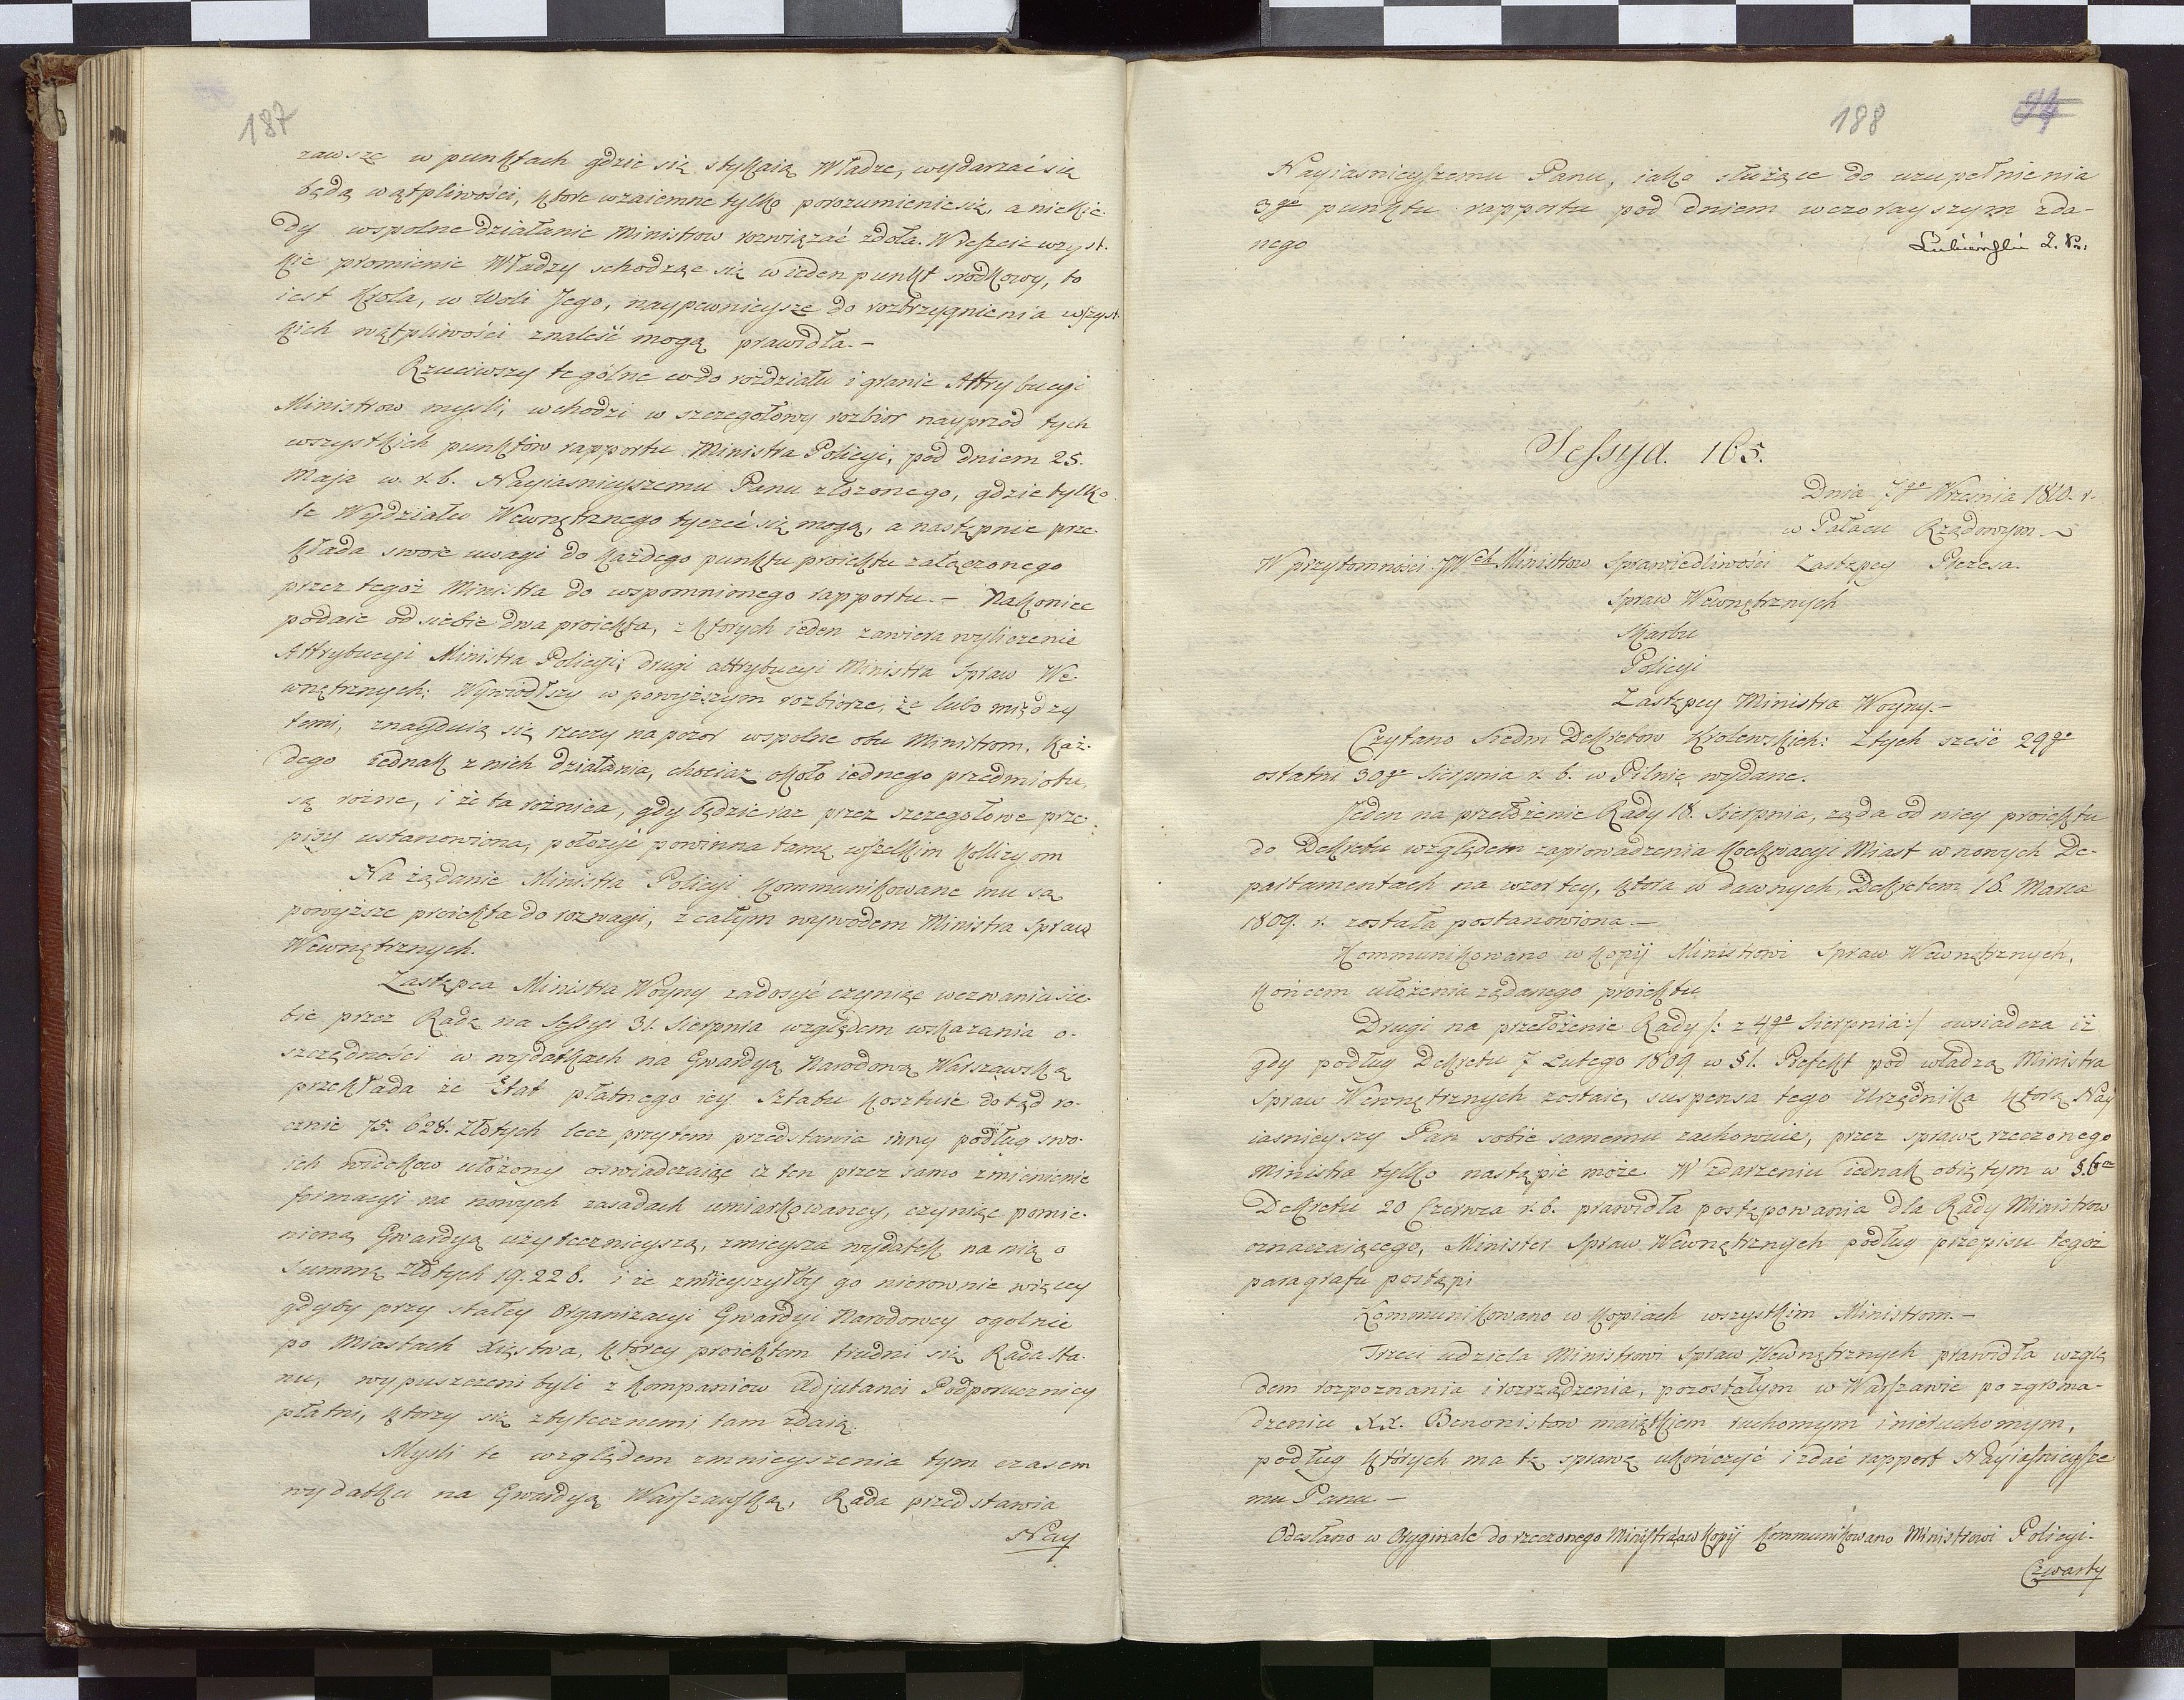 187
zawsze w punktach gdzie się stykaią Władze, wydarzać się
będą wątpliwości, ktore wzaiemne tylko porozumienie się, a niekie-
dy wspolne działanie Ministrow rozwiązać zdoła. Wreszcie wszyst-
kie promienie Władzy schodząc się w ieden punkt srodkowy, to
iest Krola, w Woli Jego, naypewnieysze do roztrzygnienia wszyst-
kich wątpliwości znaleść mogą prawidła.-
Rzuciwszy te gólne co do rozdziału i granic Attrybucyi
Ministrow mysli, wchodzi w szczegołowy rozbior nayprzod tych
wszystkich punktów rapportu Ministra Policyi, pod dniem 25.
Maja w. r. b. Nayiasnieyszemu Panu złozonego, gdzie tylko
te Wydziału Wewnętrznego tyczeć się mogą, a następnie prze
kłada swoie uwagi do każdego punktu proiektu załączonego
przez tegoż Ministra do wspomnionego rapportu.- Nakoniec
podaie od siebie dwa proiekta, z ktorych ieden zawiera wyliczenie
Attrybucyi Ministra Policyi; drugi attrybucyi Ministra Spraw We-
wnętrznych; Wywiodłszy w powyższym rozbiorze, że lubo między
temi, znayduią się rzeczy na pozor wspolne obu Ministrom, każ-
dego iednak z nich działania, chociaż około iednego przedmiotu,
są rożne, i że ta rożnica, gdy będzie raz przez szczegołowe prze-
pisy ustanowiona, położyć powinna tamę wszelkim Kollizyom
Na żądanie Ministra Policyi kommunikowane mu są
powyższe proiekta do rozwagi, z całym wywodem Ministra Spraw
Wewnętrznych.
Zastępca Ministra Woyny zadosyć czyniąc wezwaniu sie-
bie przez Radę na Sessyi 31. Sierpnia względem wskazania o-
szczędności w wydatkach na Gwardyą Narodową Warszawską
przekłada że Etat płatnego iey Sztabu kosztuie dotąd ro-
cznie 75. 628. Złotych lecz przytem przedstawia inny podług swo-
ich widokow ułożony oswiadczaiąc iz ten przez samo zmienienie
formacyi na nowych zasadach umiarkowaney, czyniąc pomie-
nioną Gwardyą użytecznieyszą, zmieysza wydatek na nią o
summę złotych 19.228. i że zmnieyszyłby go nierownie więcey
gdyby przy stałey Organizacyi Gwardyi Narodowey ogolnie
po Miastach Xięstwa, ktorey proiektem trudni się Rada Sta-
nu, wypuszczeni byli z kompaniow Adjutanci Podporucznicy
płatni, ktorzy się zbytecznemi tam zdaią.
Mysli te względem zmnieyszenia tym czasem
wydatku na Gwardyą Warszawską, Rada przedstawia
Nay
188
Nayiasnieyszemu Panu, iako służące do uzupełnienia
3go punktu rapportu pod dniem wczorayszym zda-
nego
Sessya. 165.
Dnia 7go Wrzesnia 1810. r.
w Pałacu Rządowym.
W przytomności JWch Ministrow Sprawiedliwości Zastępcy Prezesa.
Spraw Wewnętrznych
Skarbu
Policyi
Zastępcy Ministra Woyny.-
Czytano Siedm Dekretow Krolewskich: Z tych sześć 29go
ostatni 30go Sierpnia r. b. w Pilnic wydane.
Jeden na przełożenie Rady 18. Sierpnia, ząda od niey proiektu
do Dekretu względem zaprowadzenia Kockwacyi Miast w nowych De-
partamentach na wzor tey, ktora w dawnych, Dekretem 18. Marca
1809. r. została postanowiona.-
Kommunikowano w kopij Ministrowi Spraw Wewnętrznych,
końcem ułożenia ządanego proiektu
Drugi na przełożenie Rady /: z 4go Sierpnia:/ oswiadcza iż
gdy podług Dekretu 7 Lutego 1809 w § 1. Prefekt pod władzą Ministra
Spraw Wewnętrznych zostaie, suspensa tego Urzędnika ktorą Nay
iasnieyszy Pan sobie samemu zachowuie, przez sprawę rzeczonego
Ministra tylko nastąpić może. W zdarzeniu iednak obiętym w §.
Dekretu 20 Czerwca r. b. prawidła postępowania dla Rady Ministrow
oznaczaiącego, Minister Spraw Wewnętrznych podług przepisu tegoż
paragrafu postąpi
Kommunikowano w Kopiach wszystkim Ministrom.-
Trzeci udziela Ministrowi Spraw Wewnętrznych prawidła wzglę
dem rozpoznania i rozrządzenia, pozostałym w Warszawie po zgroma-
dzeniu XX. Benonistow maiątkiem ruchomym i nieruchomym,
podług których ma tę sprawę ukończyć i zdać rapport Nayiasnieysze
mu Panu.-
Odesłano w Orygnale do rzeczonego Ministra, a w kopij Kommunikowano Ministrowi Policyi.
Czwarty